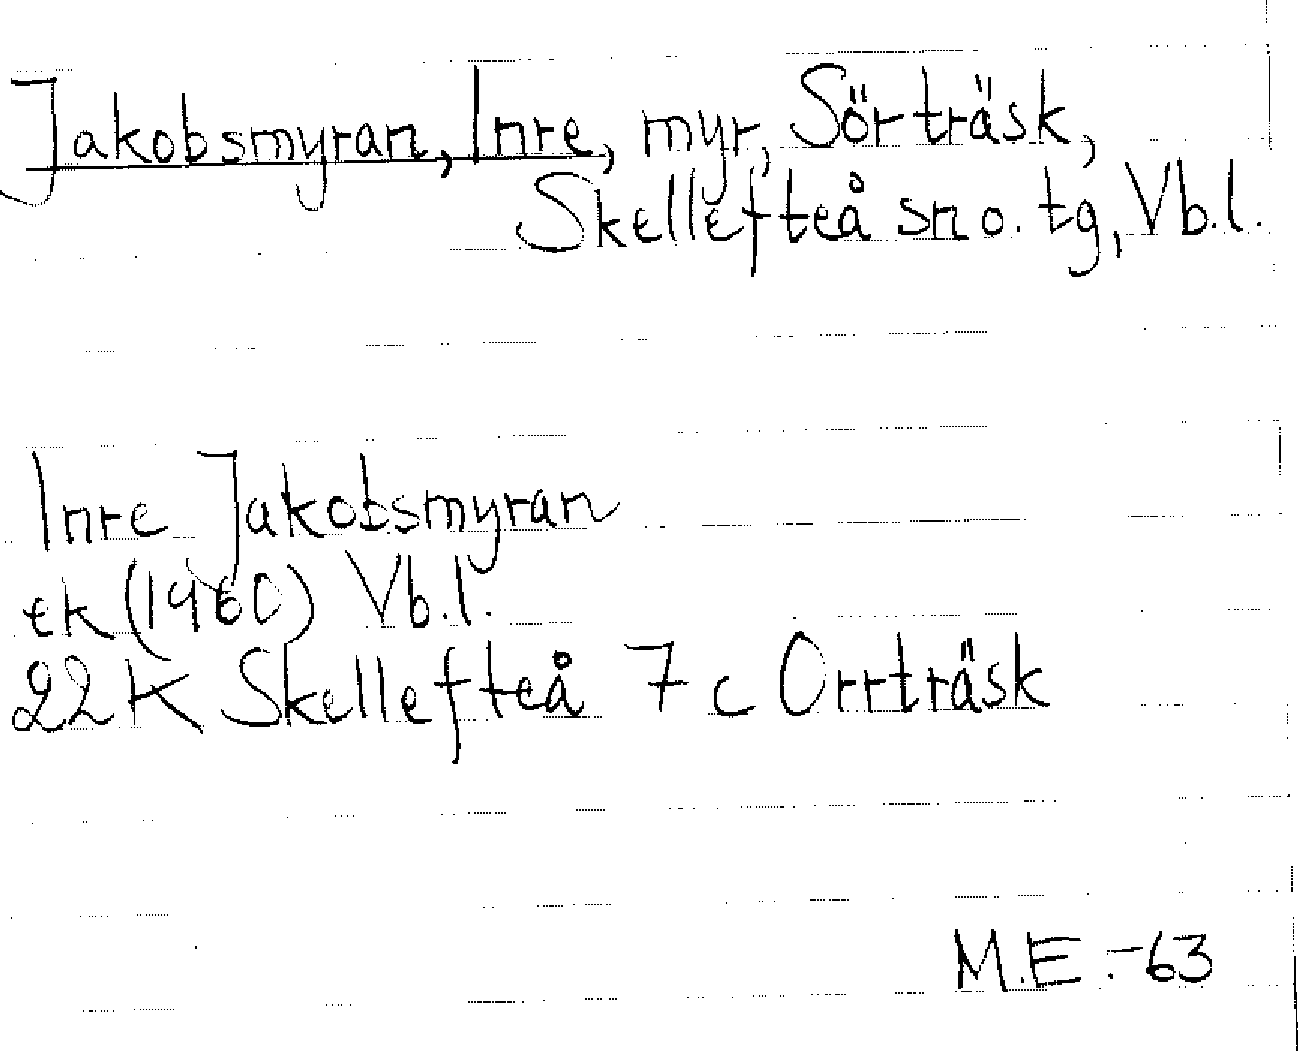 Jakobsmyran, Inre, myr, Sörträsk,
Skellefteå sn o. tg, Vb.l.
Inre Jakobsmyran
ek (1960) Vb.l.
22 K Skellefteå 7 c Orrträsk
M.E. -63